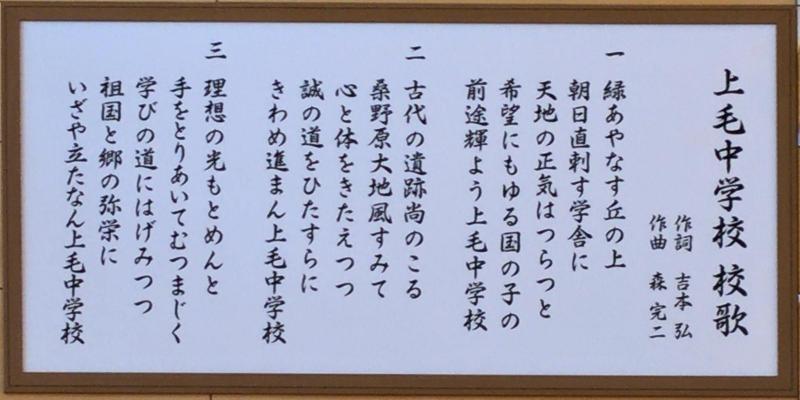 上毛中学校 校歌
作詞 吉本 弘
作曲 森 完二
一 緑あやなす丘の上
朝日直刺す学舎に
天地の正気はつらつと
希望にもゆる国の子の
前途輝よう上毛中学校
二 古代の遺跡尚のこる
桑野原大地風すみて
心と体をきたえつつ
誠の道をひたすらに
きわめ進まん上毛中学校
三 理想の光もとめんと
手をとりあいてむつまじく
学びの道にはげみつつ
祖国と郷の弥栄に
いざや立たなん上毛中学校